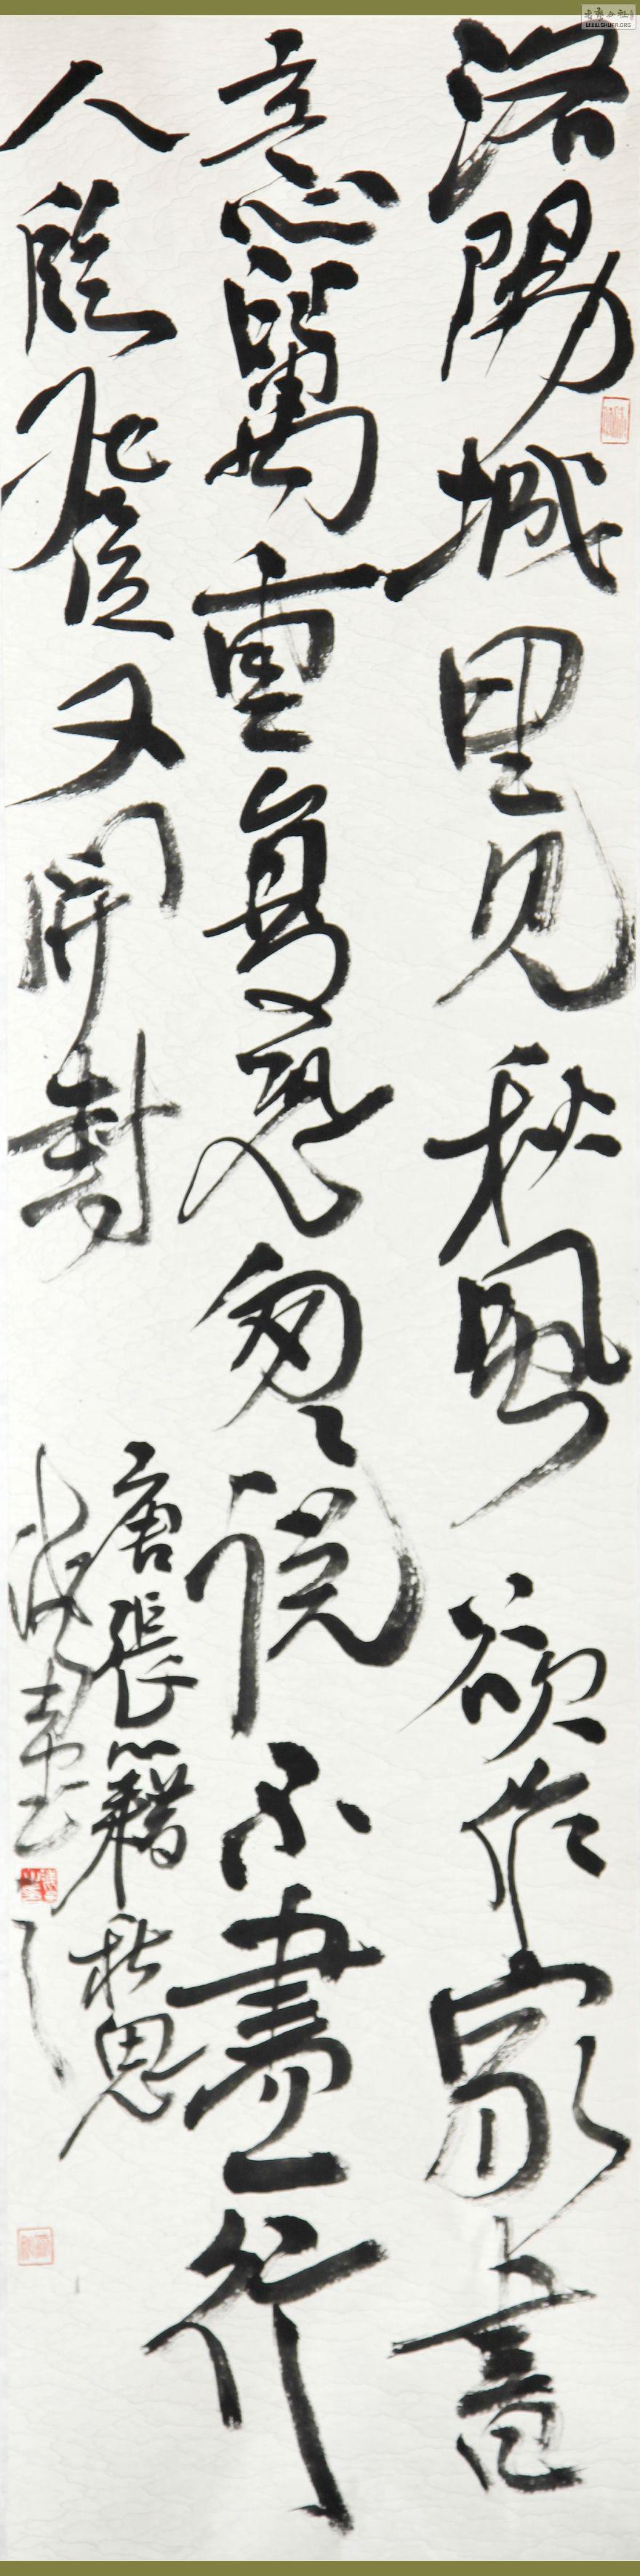 洛陽城里见秋風欲作家書
意萬重復恐匆〻説不盡行
人臨發又開封
唐張籍秋思
WWW.SHUFA.ORG